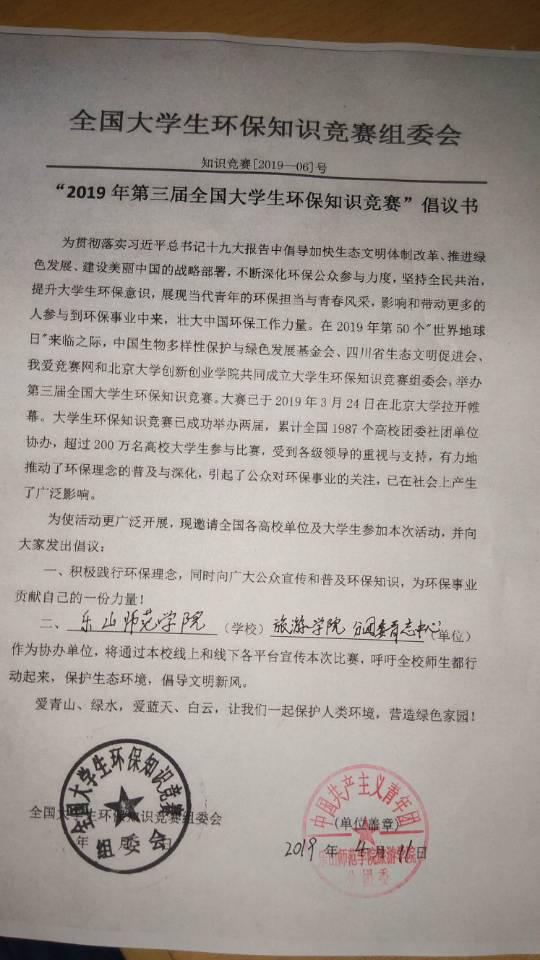 全国大学生环保知识竞赛组委会
知识竞赛[2019—06]号
“2019 年第三届全国大学生环保知识竞赛”倡议书
为贯彻落实习近平总书记十九大报告中倡导加快生态文明体制改革、推进绿
色发展、建设美丽中国的战略部署，不断深化环保公众参与力度，坚持全民共治，
提升大学生环保意识，展现当代青年的环保担当与青春风采，影响和带动更多的
人参与到环保事业中来，壮大中国环保工作力量。在 2019 年第 50 个"世界地球
日"来临之际，中国生物多样性保护与绿色发展基金会、四川省生态文明促进会、
我爱竞赛网和北京大学创新创业学院共同成立大学生环保知识竞赛组委会，举办
第三届全国大学生环保知识竞赛。大赛已于 2019 年 3 月 24 日在北京大学拉开帷
幕。大学生环保知识竞赛已成功举办两届，累计全国 1987 个高校团委社团单位
协办，超过 200 万名高校大学生参与比赛，受到各级领导的重视与支持，有力地
推动了环保理念的普及与深化，引起了公众对环保事业的关注，已在社会上产生
了广泛影响。
为使活动更广泛开展，现邀请全国各高校单位及大学生参加本次活动，并向
大家发出倡议：
一、积极践行环保理念，同时向广大公众宣传和普及环保知识，为环保事业
贡献自己的一份力量！
二、乐山师范学院（学校）旅游学院 分团委青志中心（单位）
作为协办单位，将通过本校线上和线下各平台宣传本次比赛，呼吁全校师生都行
动起来，保护生态环境，倡导文明新风。
爱青山、绿水，爱蓝天、白云，让我们一起保护人类环境，营造绿色家园！
全国大学生环保知识竞赛
组委会
中国共产主义青年团
全国大学生环保知识竞赛组委会
(单位盖章)
年 月 日
2019 年 4 月 11 日
乐山师范学院旅游学院
分团委